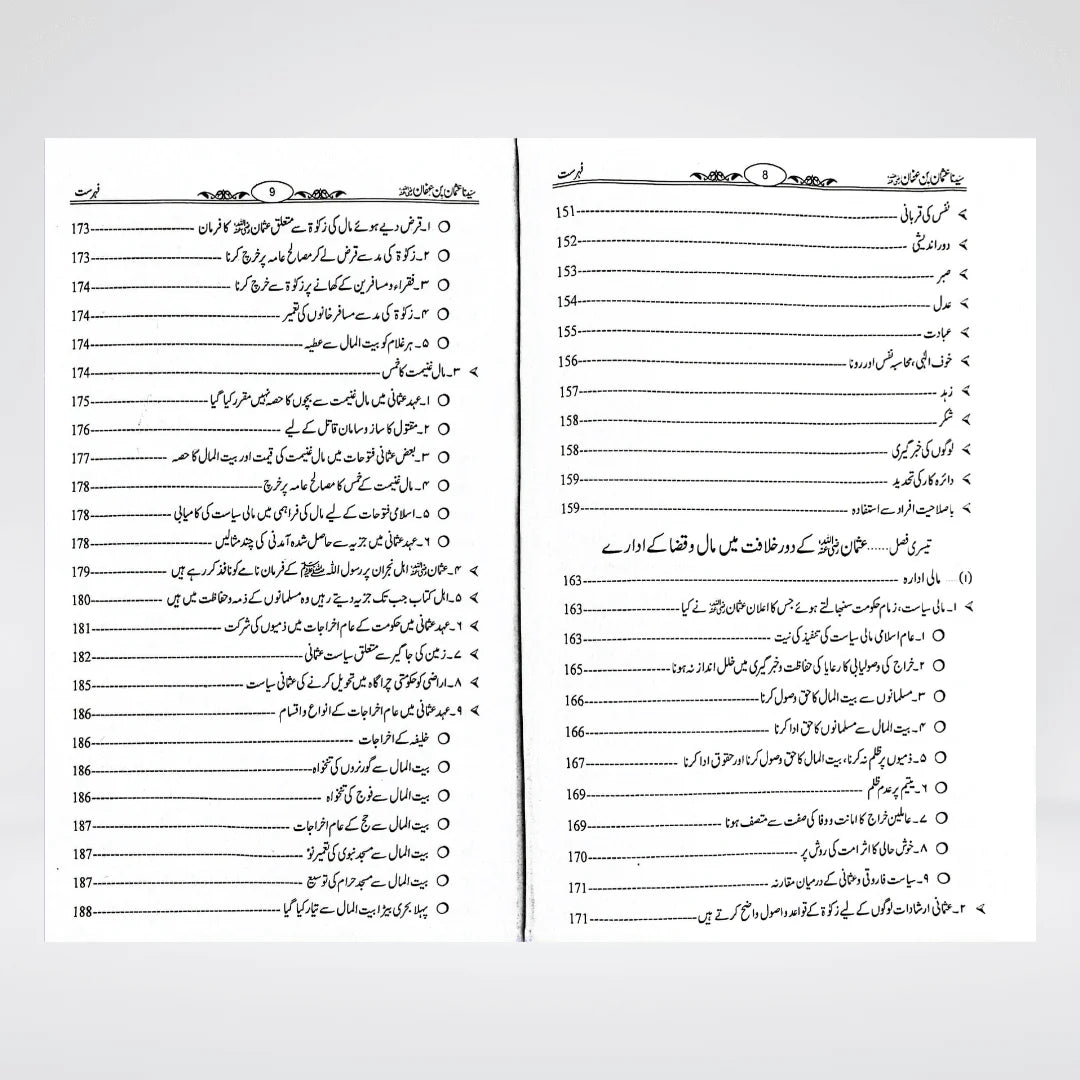 سیدنا عثمان بن عفان رضی اللہ عنہ 8 فہرست
نفس کی قربانی 151
دور اندیشی 152
صبر 153
عدل 154
عبادت 155
خوف الٰہی، محاسبہ نفس اور رونا 156
زہد 157
شکر 158
لوگوں کی خبر گیری 158
دائرہ کار کی تحدید 159
باصلاحیت افراد سے استفادہ 159
تیسری فصل...... عثمان رضی اللہ عنہ کے دور خلافت میں مال و قضا کے ادارے
(۱) مالی ادارہ 163
۱۔ مالی سیاست، زمام حکومت سنبھالتے ہوئے جس کا اعلان عثمان رضی اللہ عنہ نے کیا 163
۱۔ عام اسلامی مالی سیاست کی تنفیذ کی نیت 163
۲۔ خراج کی وصولیابی کا رعایا کی حفاظت و خبر گیری میں خلل انداز نہ ہونا 165
۳۔ مسلمانوں سے بیت المال کا حق وصول کرنا 166
۴۔ بیت المال سے مسلمانوں کا حق ادا کرنا 166
۵۔ ذمیوں پر ظلم نہ کرنا، بیت المال کا حق وصول کرنا اور حقوق ادا کرنا 167
۶۔ یتیم پر عدم ظلم 169
۷۔ عاملین خراج کا امانت و وفا کی صفت سے متصف ہونا 169
۸۔ خوش حالی کا اثر امت کی روش پر 170
۹۔ سیاست فاروقی و عثمانی کے درمیان مقارنہ 171
۲۔ عثمانی ارشادات لوگوں کے لیے زکوٰۃ کے قواعد و اصول واضح کرتے ہیں 171
سیدنا عثمان بن عفان رضی اللہ عنہ 9 فہرست
۱۔ قرض دیے ہوئے مال کی زکوٰۃ سے متعلق عثمان رضی اللہ عنہ کا فرمان 173
۲۔ زکوٰۃ کی مد سے قرض لے کر مصالح عامہ پر خرچ کرنا 173
۳۔ فقراء و مسافرین کے کھانے پر زکوٰۃ سے خرچ کرنا 174
۴۔ زکوٰۃ کی مد سے مسافر خانوں کی تعمیر 174
۵۔ ہر غلام کو بیت المال سے عطیہ 174
۳۔ مال غنیمت کا خمس 174
۱۔ عہد عثمانی میں مال غنیمت سے بچوں کا حصہ نہیں مقرر کیا گیا 175
۲۔ مقتول کا ساز و سامان قاتل کے لیے 176
۳۔ بعض عثمانی فتوحات میں مال غنیمت کی قیمت اور بیت المال کا حصہ 177
۴۔ مال غنیمت کے خمس کا مصالح عامہ پر خرچ 178
۵۔ اسلامی فتوحات کے لیے مال کی فراہمی میں مالی سیاست کی کامیابی 178
۶۔ عہد عثمانی میں جزیہ سے حاصل شدہ آمدنی کی چند مثالیں 178
۴۔ عثمان رضی اللہ عنہ اہل نجران پر رسول اللہ ﷺ کے فرمان نامے کو نافذ کر رہے ہیں 179
۵۔ اہل کتاب جب تک جزیہ دیتے رہیں وہ مسلمانوں کے ذمہ و حفاظت میں ہیں 180
۶۔ عہد عثمانی میں حکومت کے عام اخراجات میں ذمیوں کی شرکت 181
۷۔ زمین کی جاگیر سے متعلق سیاست عثمانی 182
۸۔ اراضی کو حکومتی چراگاہ میں تحویل کرنے کی عثمانی سیاست 185
۹۔ عہد عثمانی میں عام اخراجات کے انواع و اقسام 186
خلیفہ کے اخراجات 186
بیت المال سے گورنروں کی تنخواہ 186
بیت المال سے فوج کی تنخواہ 186
بیت المال سے حج کے عام اخراجات 187
بیت المال سے مسجد نبوی کی تعمیر نو 187
بیت المال سے مسجد حرام کی توسیع 187
پہلا بحری بیڑا بیت المال سے تیار کیا گیا 188